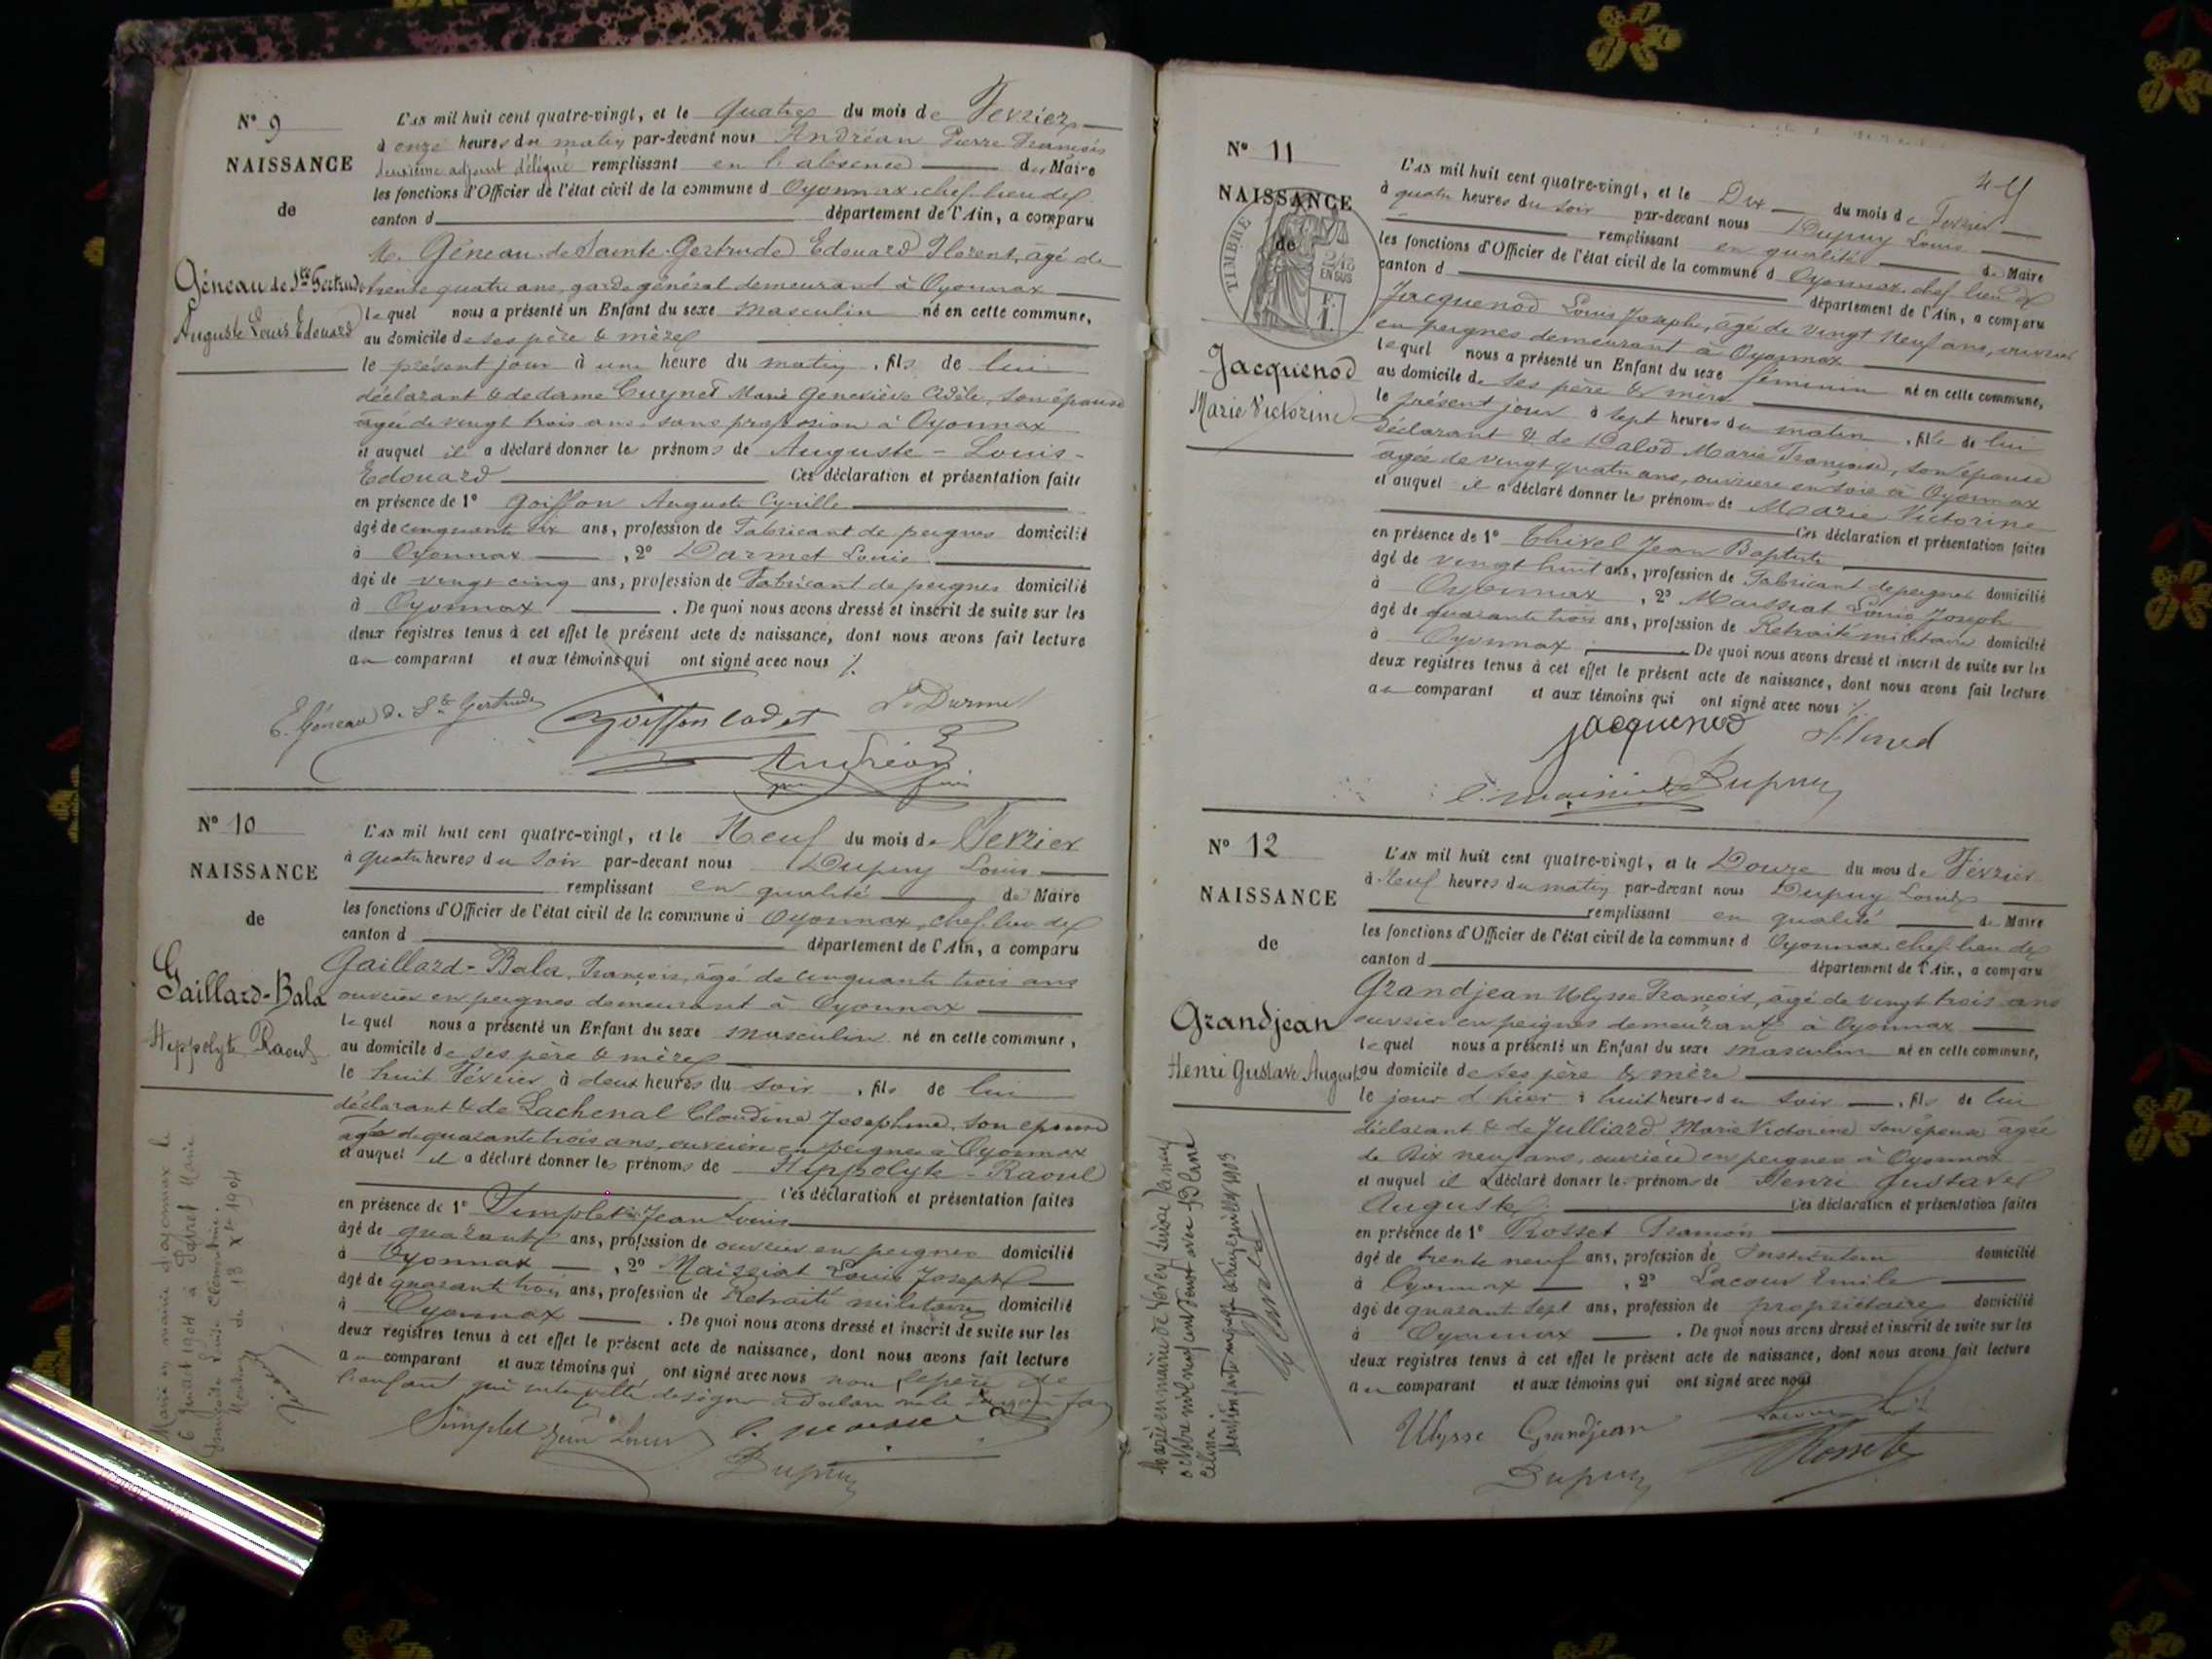 N° 9
NAISSANCE
de
Géneau de Ste Gertrude
Auguste Louis Edouard
L'an mil huit cent quatre-vingt, et le quatre du mois de Fevrier
à onze heures du matin par-devant nous Andréan Pierre François
deuxième adjoint délégué remplissant en l'absence du Maire
les fonctions d'Officier de l'état civil de la commune d Oyonnax, chef-lieu de
canton d département de l'Ain, a comparu
M. Géneau de Sainte Gertrude Edouard Florent, âgé de
trente quatre ans, garde général demeurant à Oyonnax
lequel nous a présenté un Enfant du sexe masculin né en cette commune,
au domicile de ses père & mère
le présent jour à une heure du matin, fils de lui
déclarant & de dame Cuynet Marie Geneviève Adèle, son épouse
âgée de vingt trois ans, sans profession à Oyonnax
et auquel il a déclaré donner les prénoms de Auguste - Louis -
Edouard Ces déclaration et présentation faite
en présence de 1° Goiffon Auguste Cyrille
âgé de cinquante six ans, profession de Fabricant de peignes domicilié
à Oyonnax, 2° Darmet Louis
âgé de vingt cinq ans, profession de Fabricant de peignes domicilié
à Oyonnax. De quoi nous avons dressé et inscrit de suite sur les
deux registres tenus à cet effet le présent acte de naissance, dont nous avons fait lecture
au comparant et aux témoins qui ont signé avec nous ./.
E. Géneau de Ste Gertrude Goiffon cadet L. Darmet
Andréan
N° 10
NAISSANCE
de
Gaillard-Bala
Hippolyte Raoul
L'an mil huit cent quatre-vingt, et le Neuf du mois de Fevrier
à quatre heures du soir par-devant nous Dupuy Louis
remplissant en qualité de Maire
les fonctions d'Officier de l'état civil de la commune d Oyonnax, chef-lieu de
canton d département de l'Ain, a comparu
Gaillard-Bala, François, âgé de cinquante trois ans
ouvrier en peignes demeurant à Oyonnax
lequel nous a présenté un Enfant du sexe masculin né en cette commune,
au domicile de ses père & mère
le huit Février à deux heures du soir, fils de lui
déclarant & de Lachenal Claudine Josephine, son épouse
âgée de quarante trois ans, ouvrière en peignes à Oyonnax
et auquel il a déclaré donner les prénoms de Hippolyte - Raoul
Ces déclaration et présentation faites
en présence de 1° Simplet Jean Louis
âgé de quarante ans, profession de ouvrier en peignes domicilié
à Oyonnax, 2° Maissiat Louis Joseph
âgé de quarante trois ans, profession de Retraité militaire domicilié
à Oyonnax. De quoi nous avons dressé et inscrit de suite sur les
deux registres tenus à cet effet le présent acte de naissance, dont nous avons fait lecture
au comparant et aux témoins qui ont signé avec nous non le père de
l'enfant qui interpellé de signer a déclaré ne le
Simplet Jean Louis
Dupuy
Marié en mairie d'oyonnax le
6 Juillet 1904 à Marie
Louise Clementine.
Mention du 13 Xbre 1904
N° 11
NAISSANCE
de
TIMBRE
EN SUS
Jacquenod
Marie Victorine
L'an mil huit cent quatre-vingt, et le Dix du mois de Fevrier
à quatre heures du soir par-devant nous Dupuy Louis
remplissant en qualité de Maire
les fonctions d'Officier de l'état civil de la commune d Oyonnax, chef-lieu de
canton d département de l'Ain, a comparu
Jacquenod Louis Joseph, âgé de vingt neuf ans, ouvrier
en peignes demeurant à Oyonnax
lequel nous a présenté un Enfant du sexe féminin né en cette commune,
au domicile de ses père & mère
le présent jour à sept heures du matin, fille de lui
déclarant & de Dalod Marie Françoise, son épouse
âgée de vingt quatre ans, ouvrière en soie à Oyonnax
et auquel il a déclaré donner les prénoms de Marie Victorine
Ces déclaration et présentation faites
en présence de 1° Thivel Jean Baptiste
âgé de vingt huit ans, profession de Fabricant de peignes domicilié
à Oyonnax, 2° Maissiat Louis Joseph
âgé de quarante trois ans, profession de Retraité militaire domicilié
à Oyonnax. De quoi nous avons dressé et inscrit de suite sur les
deux registres tenus à cet effet le présent acte de naissance, dont nous avons fait lecture
au comparant et aux témoins qui ont signé avec nous ./.
jacquenod
Dupuy
N° 12
NAISSANCE
de
Grandjean
Henri Gustave Auguste
L'an mil huit cent quatre-vingt, et le Douze du mois de Février
à Neuf heures du matin par-devant nous Dupuy Louis
remplissant en qualité de Maire
les fonctions d'Officier de l'état civil de la commune d Oyonnax, chef-lieu de
canton d département de l'Ain, a comparu
Grandjean Ulysse François, âgé de vingt trois ans
ouvrier en peignes demeurant à Oyonnax
lequel nous a présenté un Enfant du sexe masculin né en cette commune,
au domicile de ses père & mère
le jour d'hier à huit heures du soir, fils de lui
déclarant & de Julliard Marie Victorine son épouse âgée
de dix neuf ans, ouvrière en peignes à Oyonnax
et auquel il a déclaré donner les prénoms de Henri Gustave
Auguste Ces déclaration et présentation faites
en présence de 1° Rosset
âgé de trente neuf ans, profession de Instituteur domicilié
à Oyonnax, 2° Lacour Emile
âgé de quarante sept ans, profession de propriétaire domicilié
à Oyonnax. De quoi nous avons dressé et inscrit de suite sur les
deux registres tenus à cet effet le présent acte de naissance, dont nous avons fait lecture
au comparant et aux témoins qui ont signé avec nous
Ulysse Grandjean
Dupuy Rosset
Marié en mairie de Vevey (Suisse)
octobre mil neuf cent avec Blanc
Célina